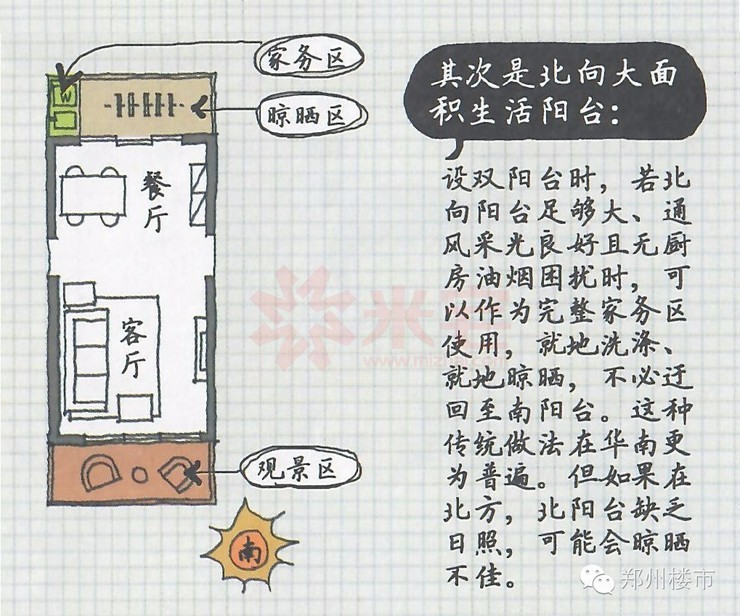 家务区
晾晒区
W
餐厅
客厅
观景区
南
其次是北向大面
积生活阳台：
设双阳台时，若北
向阳台足够大、通
风采光良好且无厨
房油烟困扰时，可
以作为完整家务区
使用，就地洗涤、
就地晾晒，不必迂
回至南阳台。这种
传统做法在华南更
为普遍。但如果在
北方，北阳台缺乏
日照，可能会晾晒
不佳。
郑州楼市